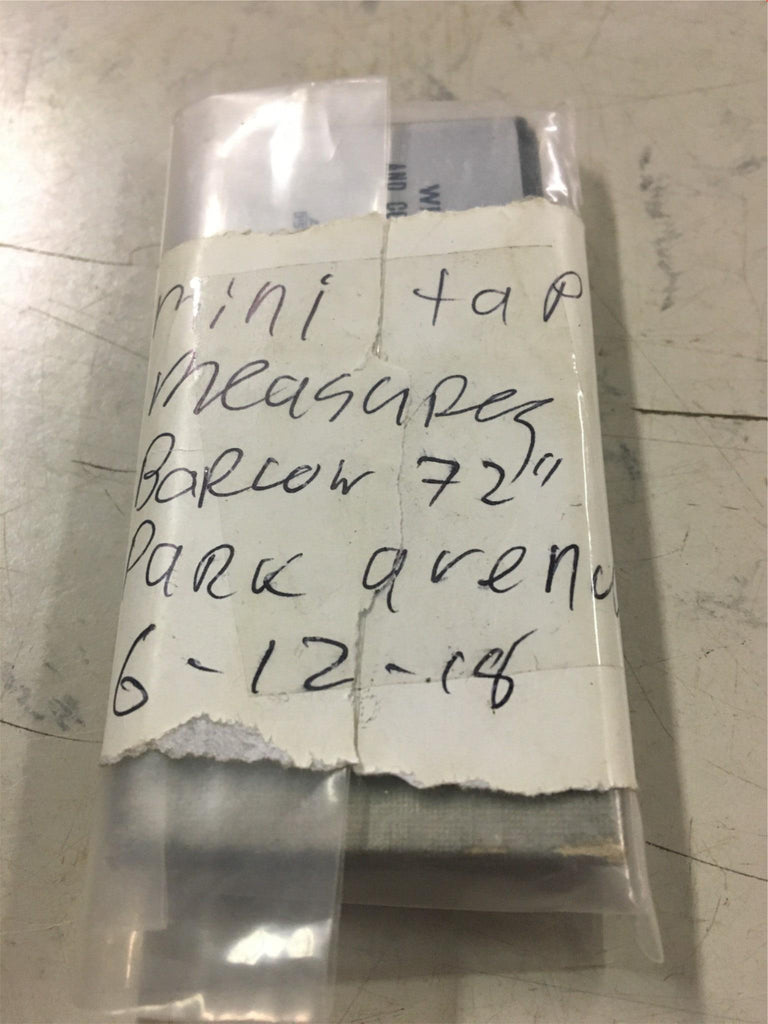 WI
AND CE
mini tap
measures
Barlow 72"
Park avenu
6-12-18